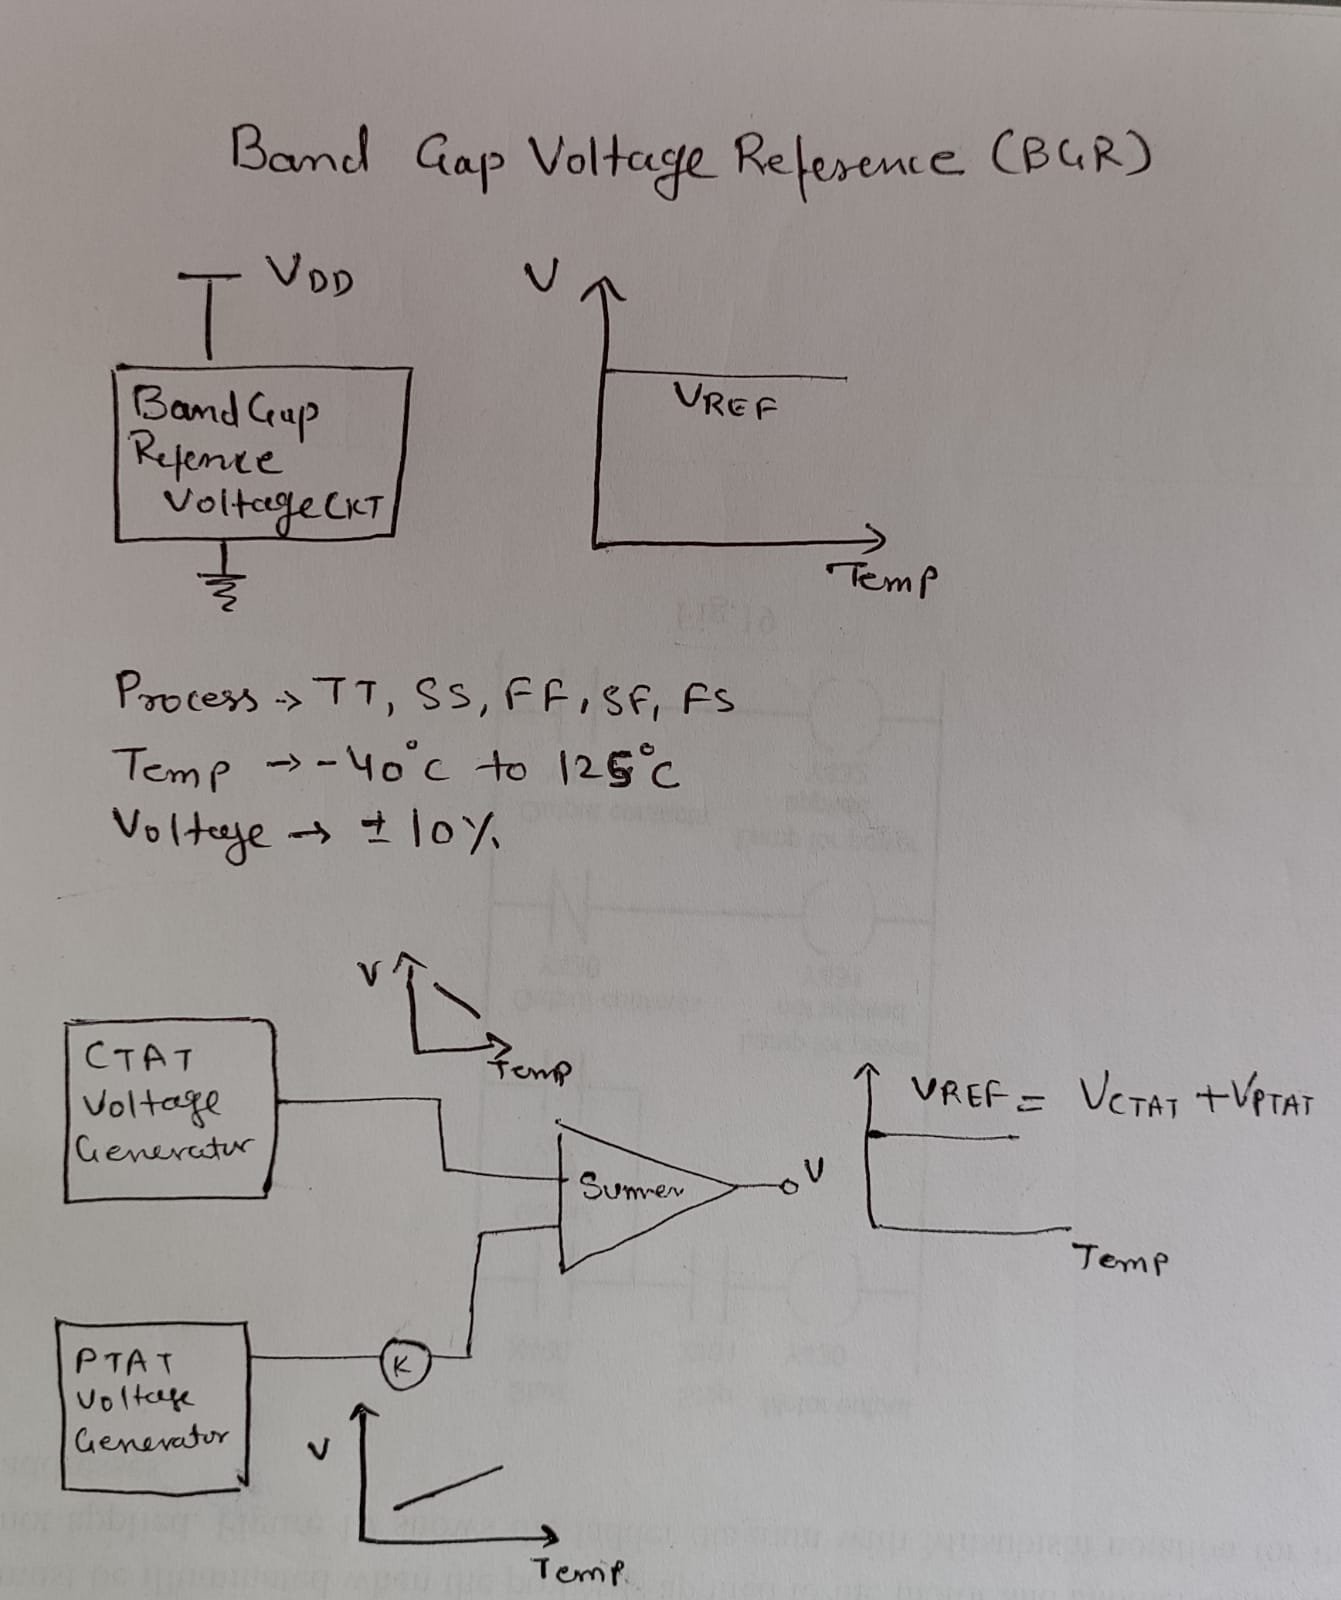 Band Gap Voltage Reference (BGR)
VDD
V
VREF
Temp
Band Gap
Refence
Voltage CKT
Process → TT, SS, FF, SF, FS
Temp → -40°C to 125°C
Voltage → ± 10%
V
Temp
CTAT
Voltage
Generator
VREF = VCTAT + VPTAT
Summer
V
Temp
PTAT
Voltage
Generator
K
V
Temp.